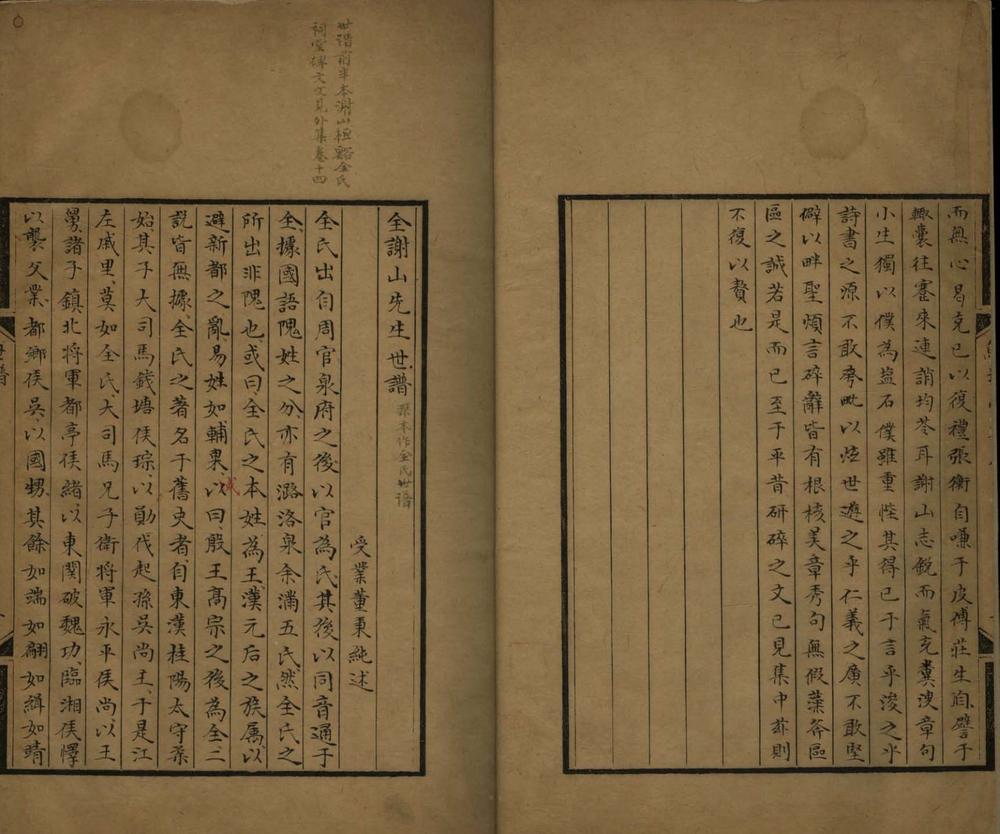 而無心曷克己以復禮張衡自嗛于皮傅莊生自譬于
輙囊往蹇來連誚均苓耳謝山志銳而氣克糞溲章句
小生獨以僕為益石僕雖重悂其得已于言乎浚之乎
詩書之源不敢旁毗以悂世遊之乎仁義之廣不敢堅
僻以畔聖煩言碎辭皆有根核美章秀句無假葉斧區
區之誠若是而已至于平昔研碎之文已見集中茲則
不復以贅也
世譜前半本謝山桓谿全氏
祠堂碑文文見外集卷十四
全謝山先生世譜 張本作全氏世譜
受業董秉純述
全氏出自周官泉府之後以官為氏其後以同音通于
全據國語隗姓之分亦有潞洛泉余滿五氏然全氏之
所出非隗也或曰全氏之本姓為王漢元后之族屬以
避新都之亂易姓如輔果以曰殷王高宗之後為全二
或
說皆無據全氏之著名于舊史者自東漢桂陽太守柔
始其子大司馬錢塘侯琮以勛伐起孫吳尚主于是江
左戚里莫如全氏大司馬兄子衛將軍永平侯尚以王
舅諸子鎮北將軍都亭侯緒以東關破魏功臨湘侯懌
以襲父業都鄉侯吳以國甥其餘如端如翩如緝如靖
世譜